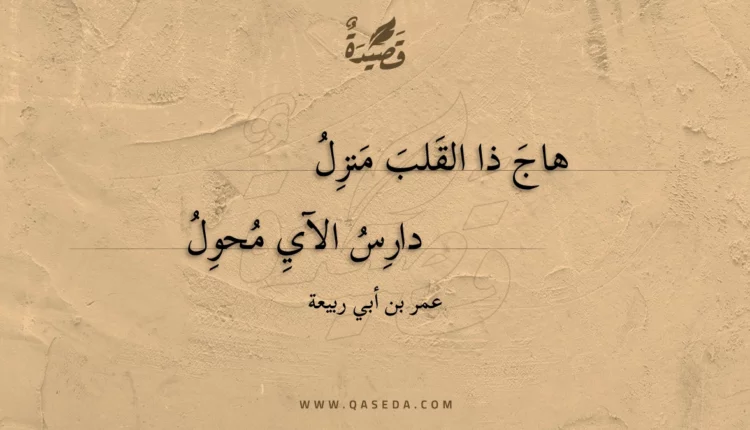 قَصِيدَةٌ
هاجَ ذا القَلبَ مَنزِلُ
دارِسُ الآيِ مُحوِلُ
عمر بن أبي ربيعة
WWW.QASEDA.COM